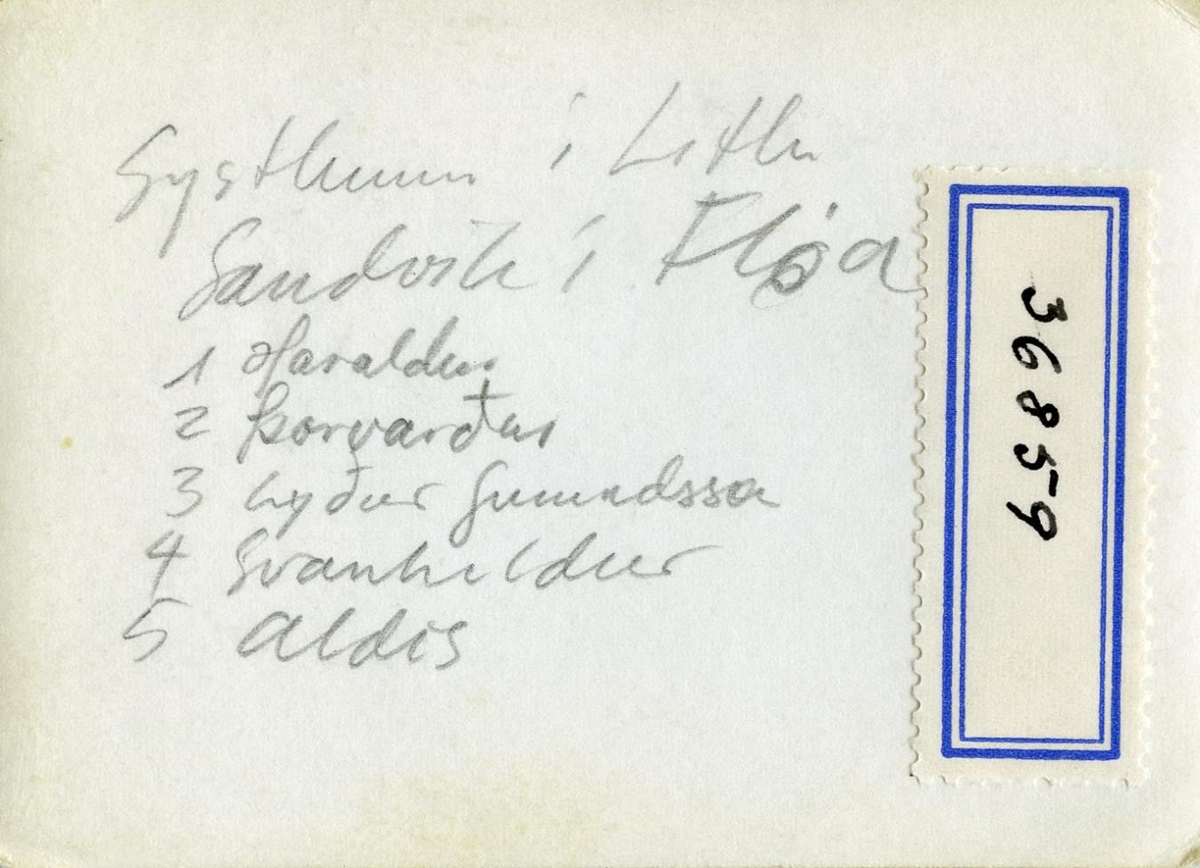 Systkinin í Litlu
Sandvík í Flóa
1 Haraldur
2 Þorvarður
3 Lýður Gumundssa
4 Svanhildur
5 Aldís
36859